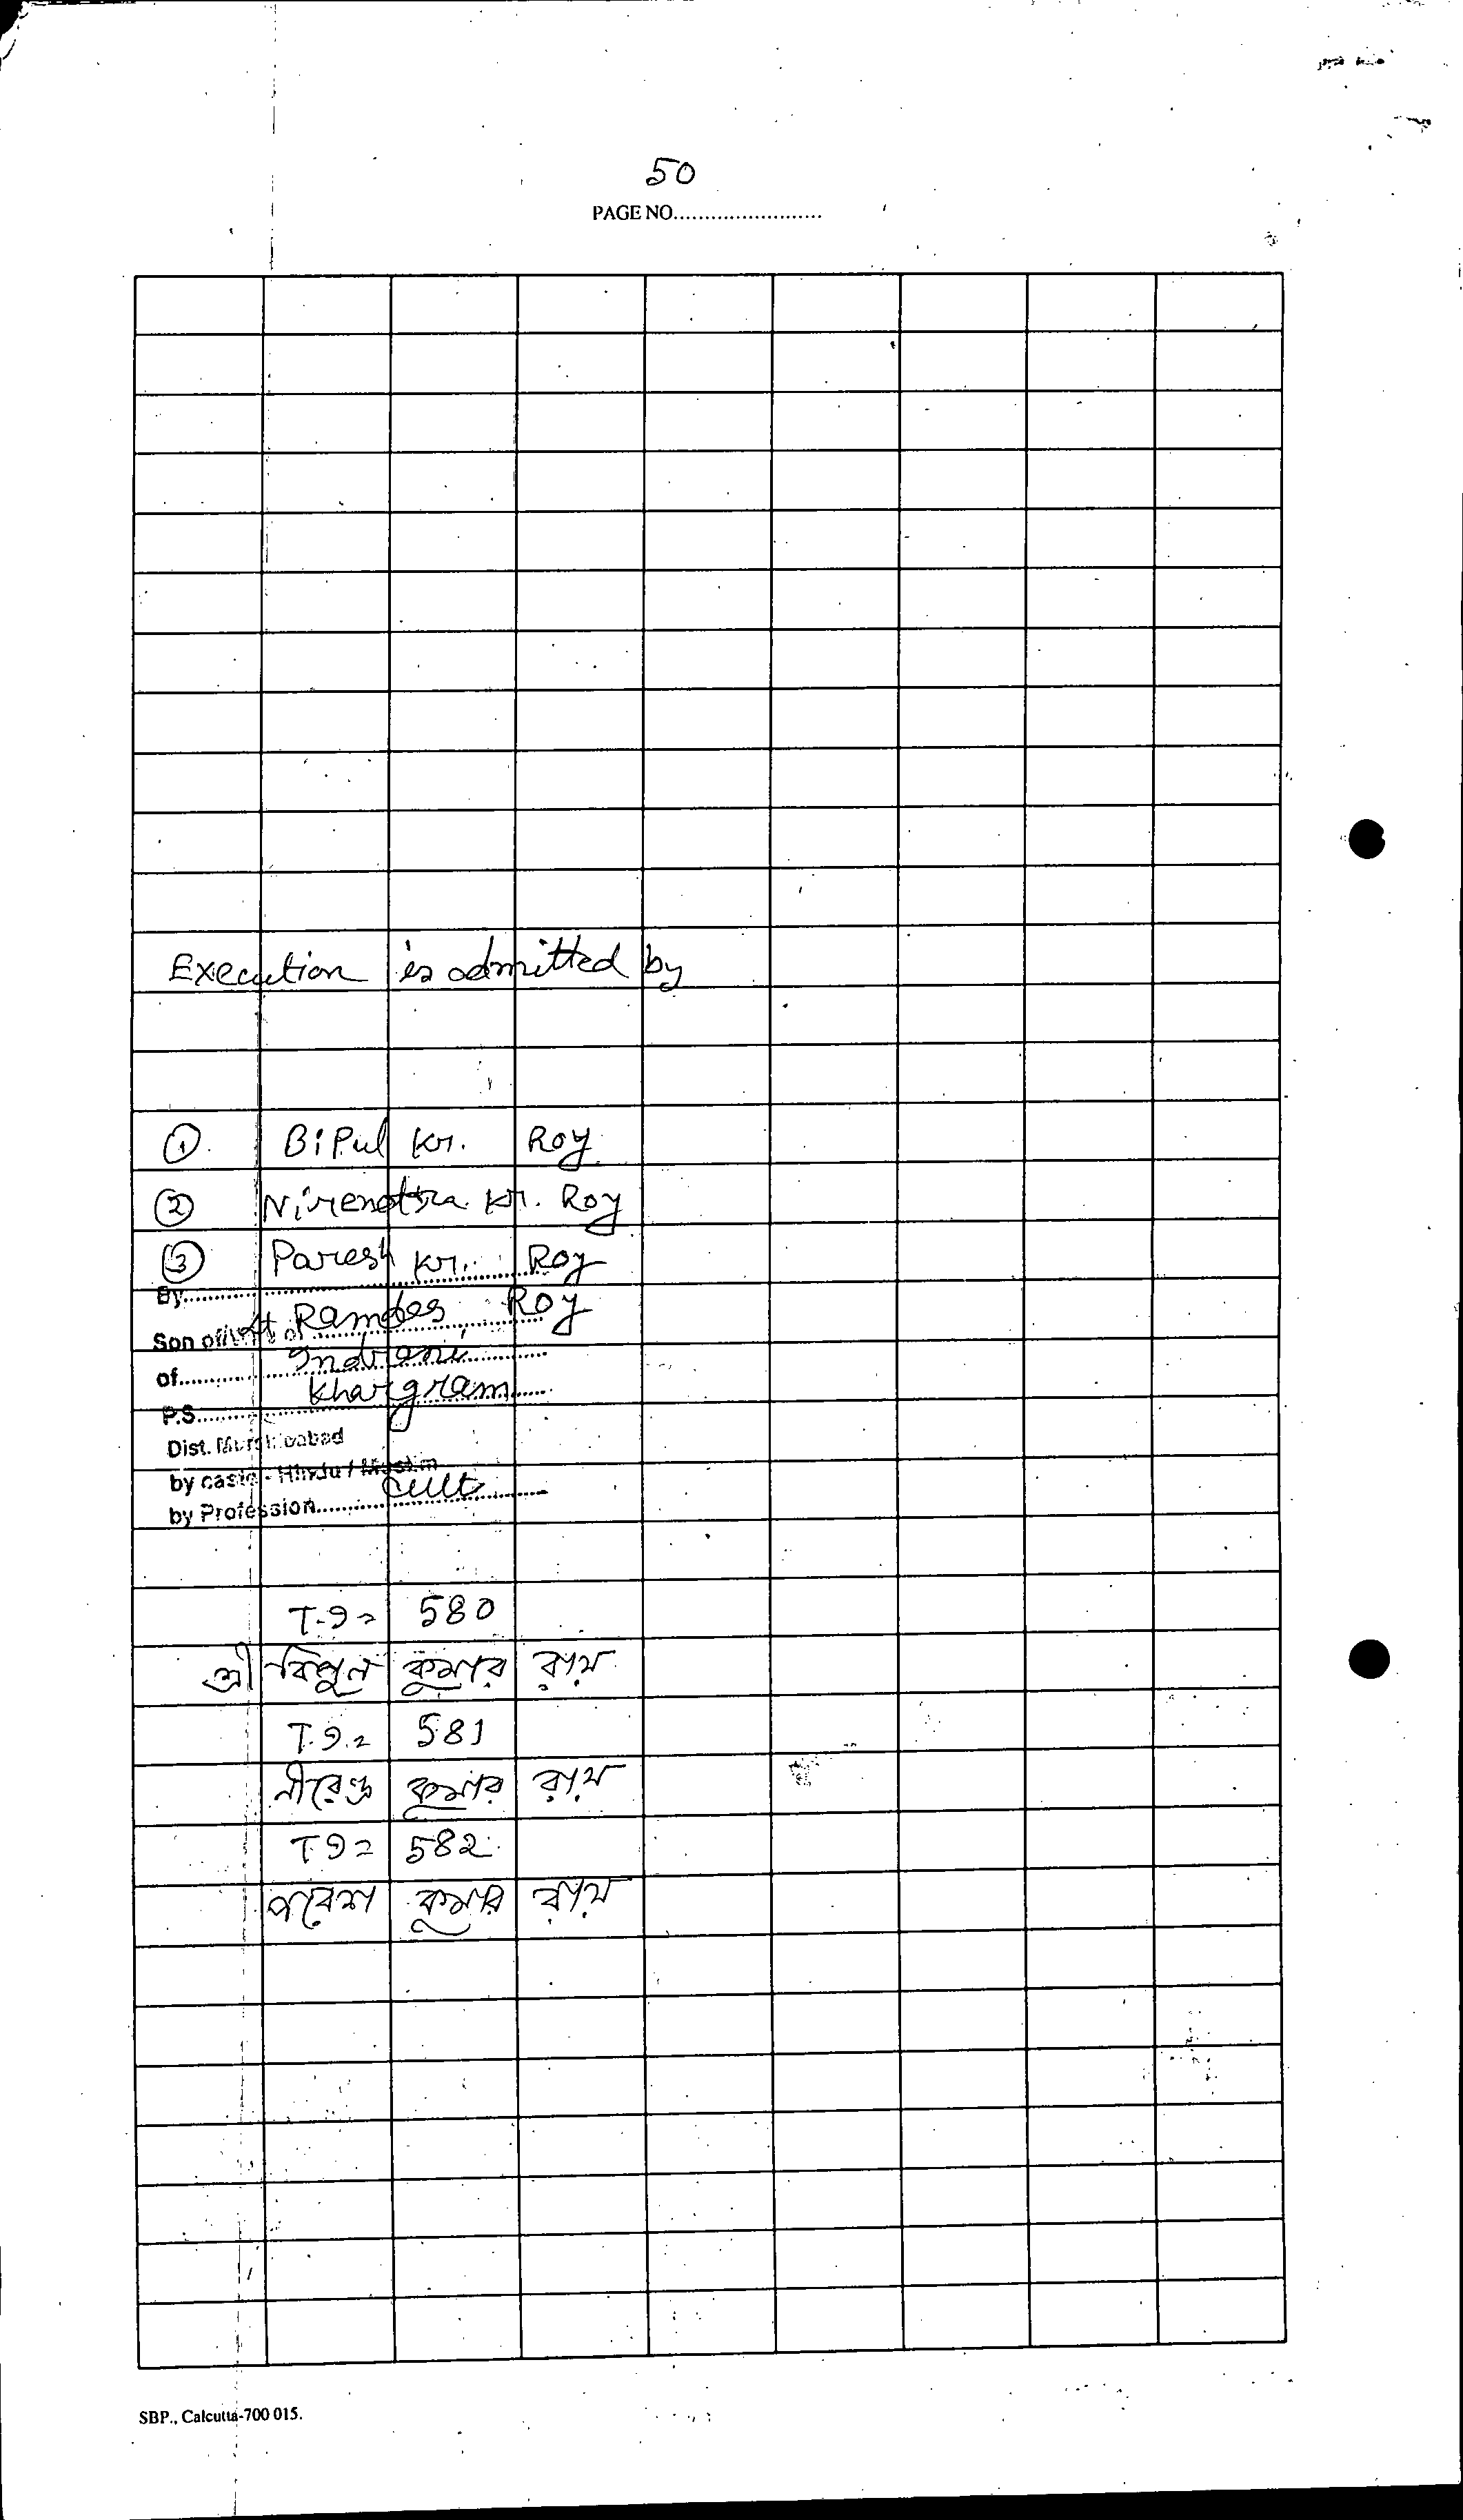 50
PAGE NO........................
Execution is admitted by
① Bipul Kr. Roy
② Nirendra Kr. Roy
③ Paresh Kr. Roy
By....................
Son of/Wife of Lt Ramdas Roy
of.......... Indrani
P.S.......... Khargram
Dist. Murshidabad
by caste - Hindu / Muslim
by Profession.......... Cult
580
শ্রী বিপুল কুমার রায়
581
নীরেন্দ্র কুমার রায়
582
পরেশ কুমার রায়
SBP., Calcutta-700 015.